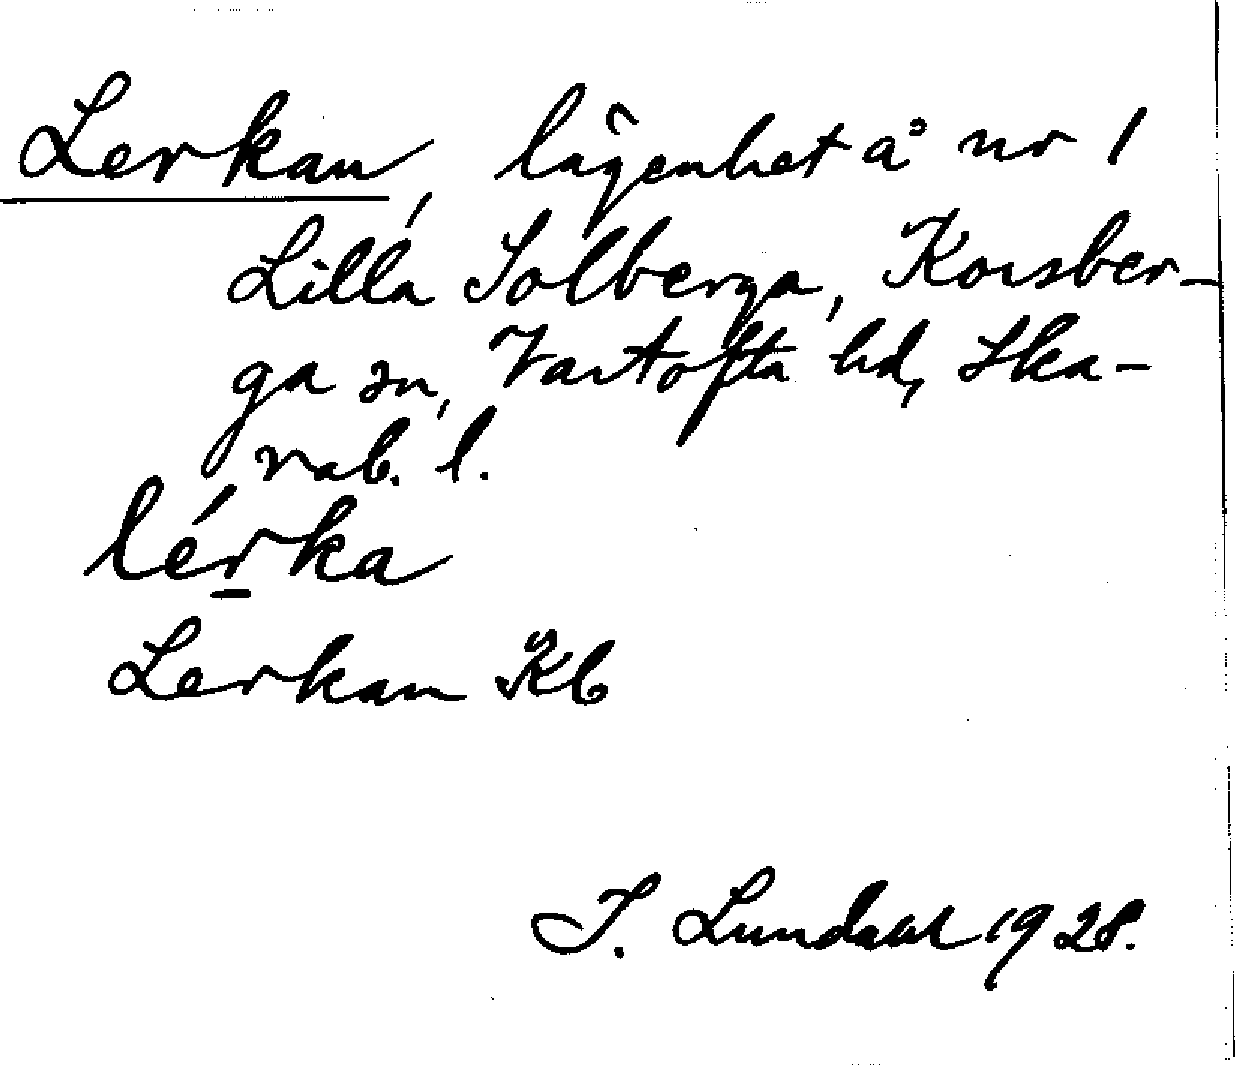 Lerkan, lägenhet å nr 1
Lilla Solberga, Korsber-
ga sn, Vartofta hd, Ska-
rab. l.
lérka
Lerkan Kb
I. Lundahl 1928.